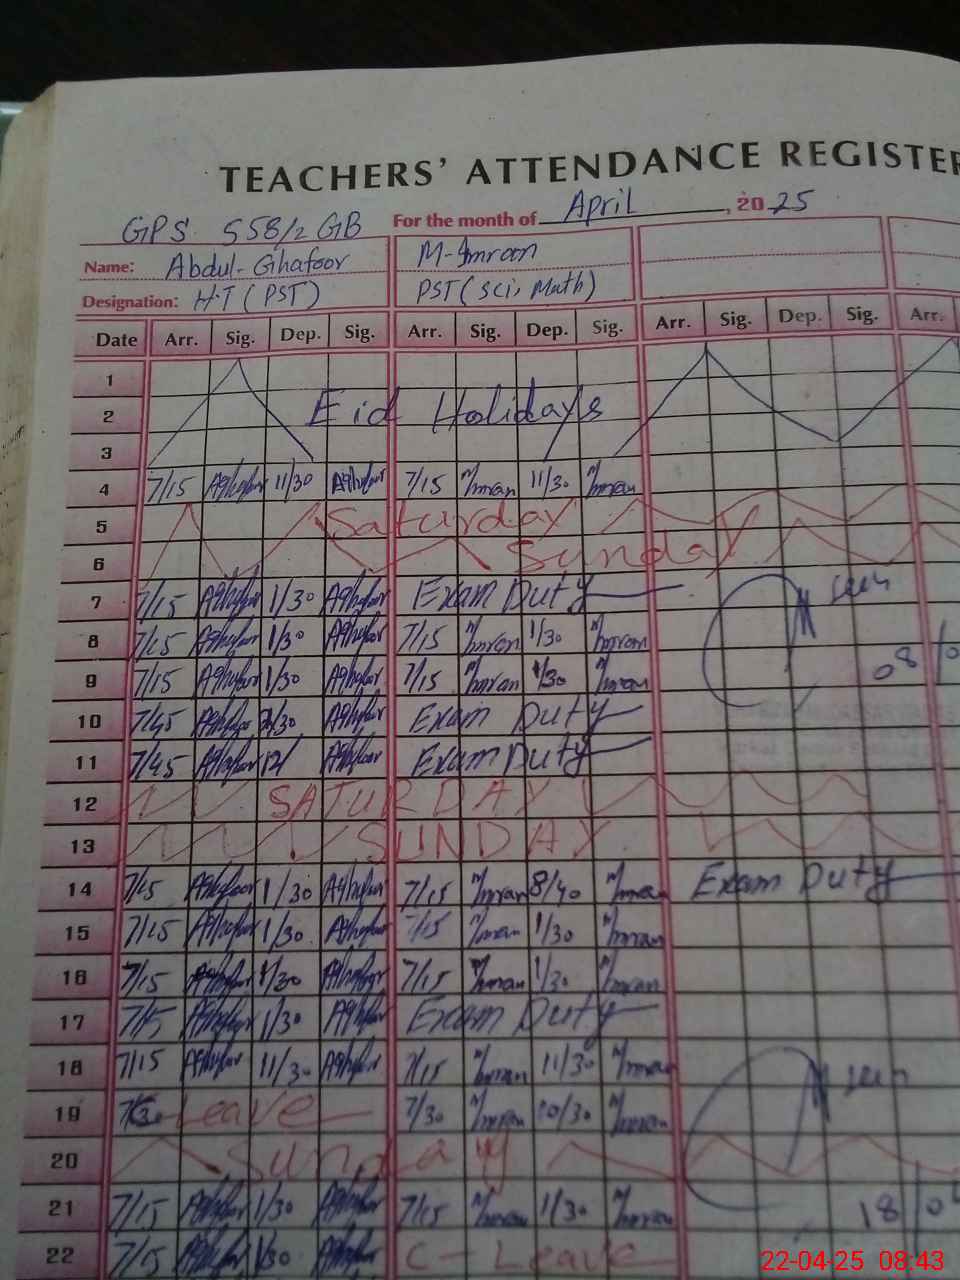 TEACHERS' ATTENDANCE REGISTER
GPS 558/2 GB For the month of April, 2025
Name: Abdul-Ghafoor M-Imran
Designation: H.T (PST) PST (Sci, Math)
Date Arr. Sig. Dep. Sig. Arr. Sig. Dep. Sig. Arr. Sig. Dep. Sig. Arr.
1
2 Eid Holidays
3
4 7/15 Aghafoor 11/30 Aghafoor 7/15 M/Imran 11/30 M/Imran
5 Saturday
6 Sunday
7 7/15 Aghafoor 1/30 Aghafoor Exam Duty seen
8 7/15 Aghafoor 1/30 Aghafoor 7/15 M/Imran 1/30 M/Imran
9 7/15 Aghafoor 1/30 Aghafoor 7/15 M/Imran 1/30 M/Imran 08/0
10 7/45 Aghafoor Aghafoor Exam Duty
11 7/45 Aghafoor 12/ Aghafoor Exam Duty
12 SATURDAY
13 SUNDAY
14 7/15 Aghafoor 1/30 Aghafoor 7/15 M/Imran 8/40 M/Imran Exam Duty
15 7/15 Aghafoor 1/30 Aghafoor 7/15 M/Imran 1/30 M/Imran
16 7/15 Aghafoor 1/30 Aghafoor 7/15 M/Imran 1/30 M/Imran
17 7/15 Aghafoor 1/30 Aghafoor Exam Duty
18 7/15 Aghafoor 11/30 Aghafoor 7/15 M/Imran 11/30 M/Imran seen
19 Leave 7/30 M/Imran 10/30 M/Imran
20 Sunday
21 7/15 Aghafoor 1/30 Aghafoor 7/15 M/Imran 1/30 M/Imran 18/0
22 7/15 Aghafoor 1/30 Aghafoor C-Leave
22-04-25 08:43